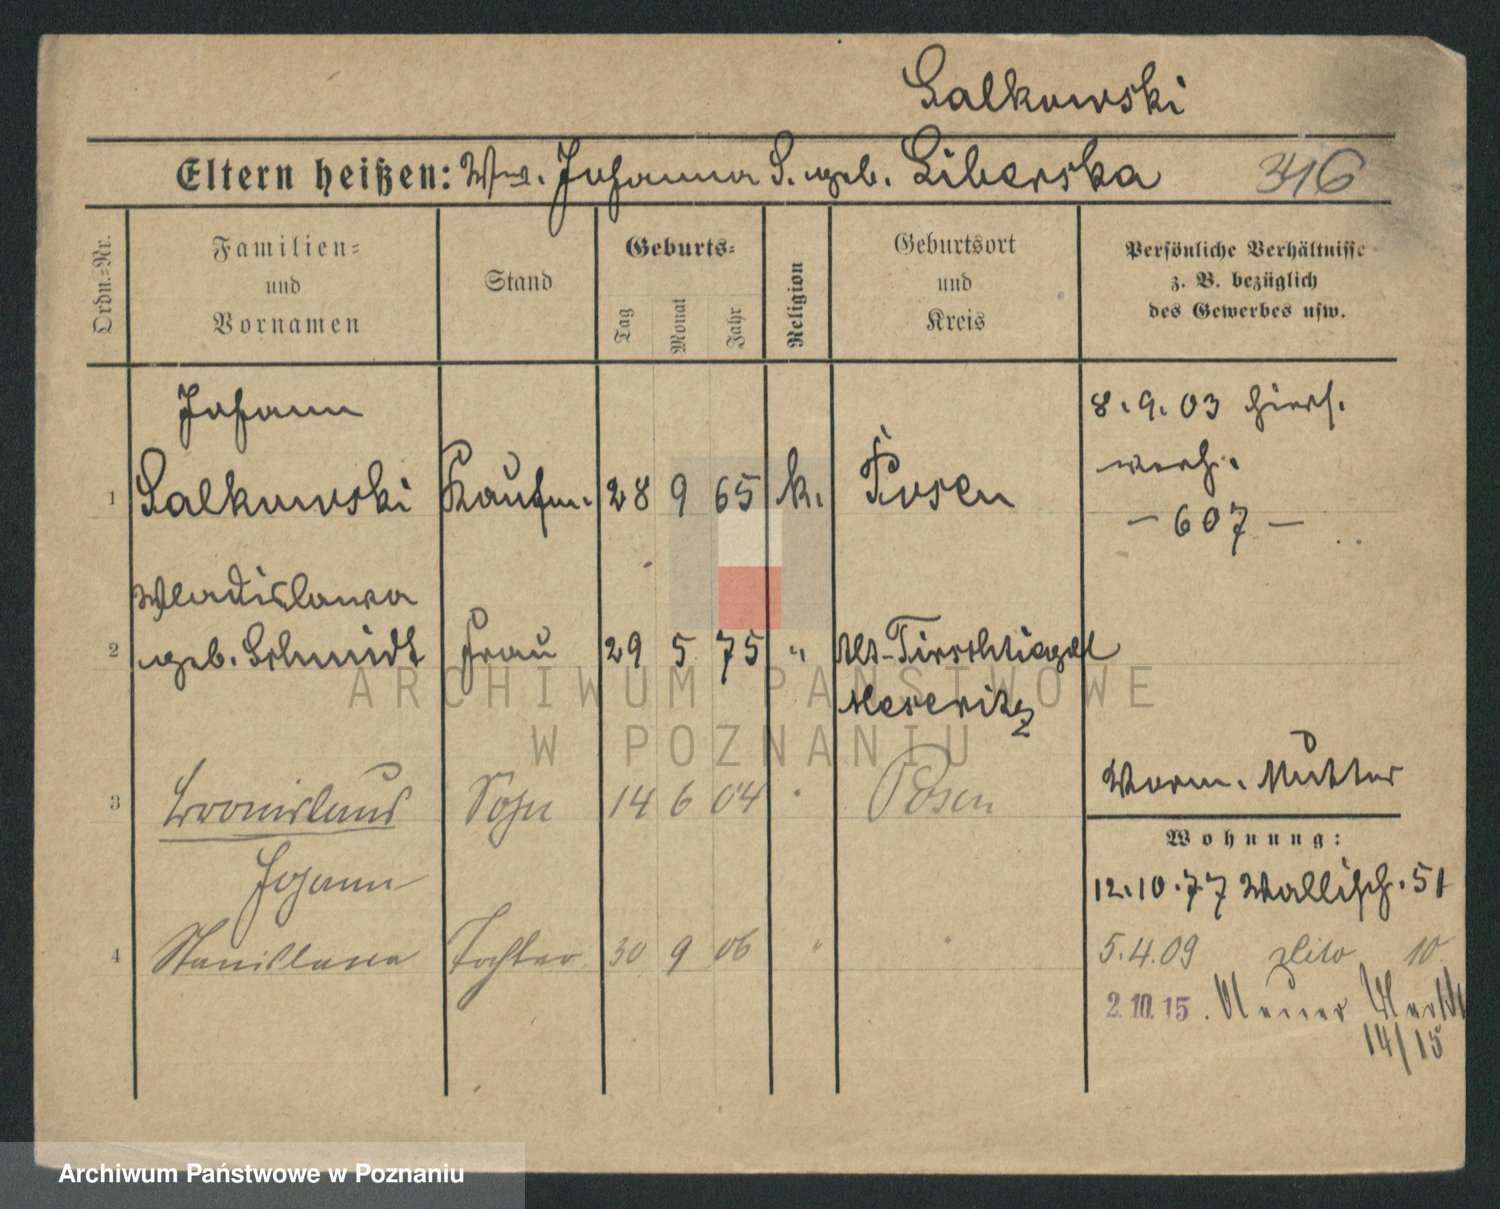 Salkowski
Eltern heißen: Ww. Johanna S. geb. Liberska 346
Ordn.-Nr.
Familien-
und
Vornamen
Stand
Geburts-
Tag
Monat
Jahr
Religion
Geburtsort
und
Kreis
Persönliche Verhältnisse
z. B. bezüglich
des Gewerbes usw.
Johann
1 Salkowski Kaufm. 28 9 65 k. Posen
8.9.03 hiers.
verh.
- 607 -
Wladislawa
2 geb. Schmidt Frau 29 5 75 " Alt-Tirschtiegel
Meseritz
3 Bronislaus Sohn 14 6 04 " Posen
Johann
4 Stanislawa Tochter 30 9 06 " "
Vorm. Mutter
Wohnung:
12.10.77 Wallisch. 51
5.4.09 dito 10
2.10.15. Neuer Markt
14/15
ARCHIWUM PAŃSTWOWE
W POZNANIU
Archiwum Państwowe w Poznaniu